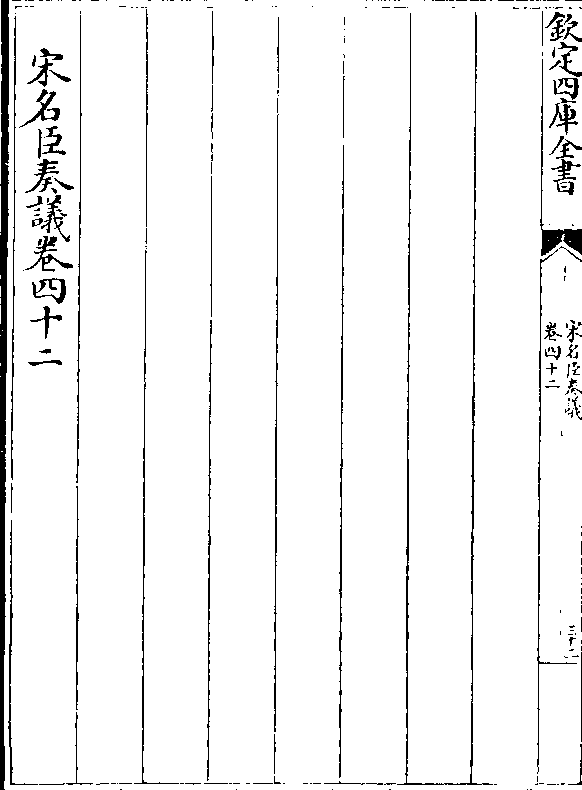 欽定四庫全書
宋名臣奏議
卷四十二
宋名臣奏議卷四十二